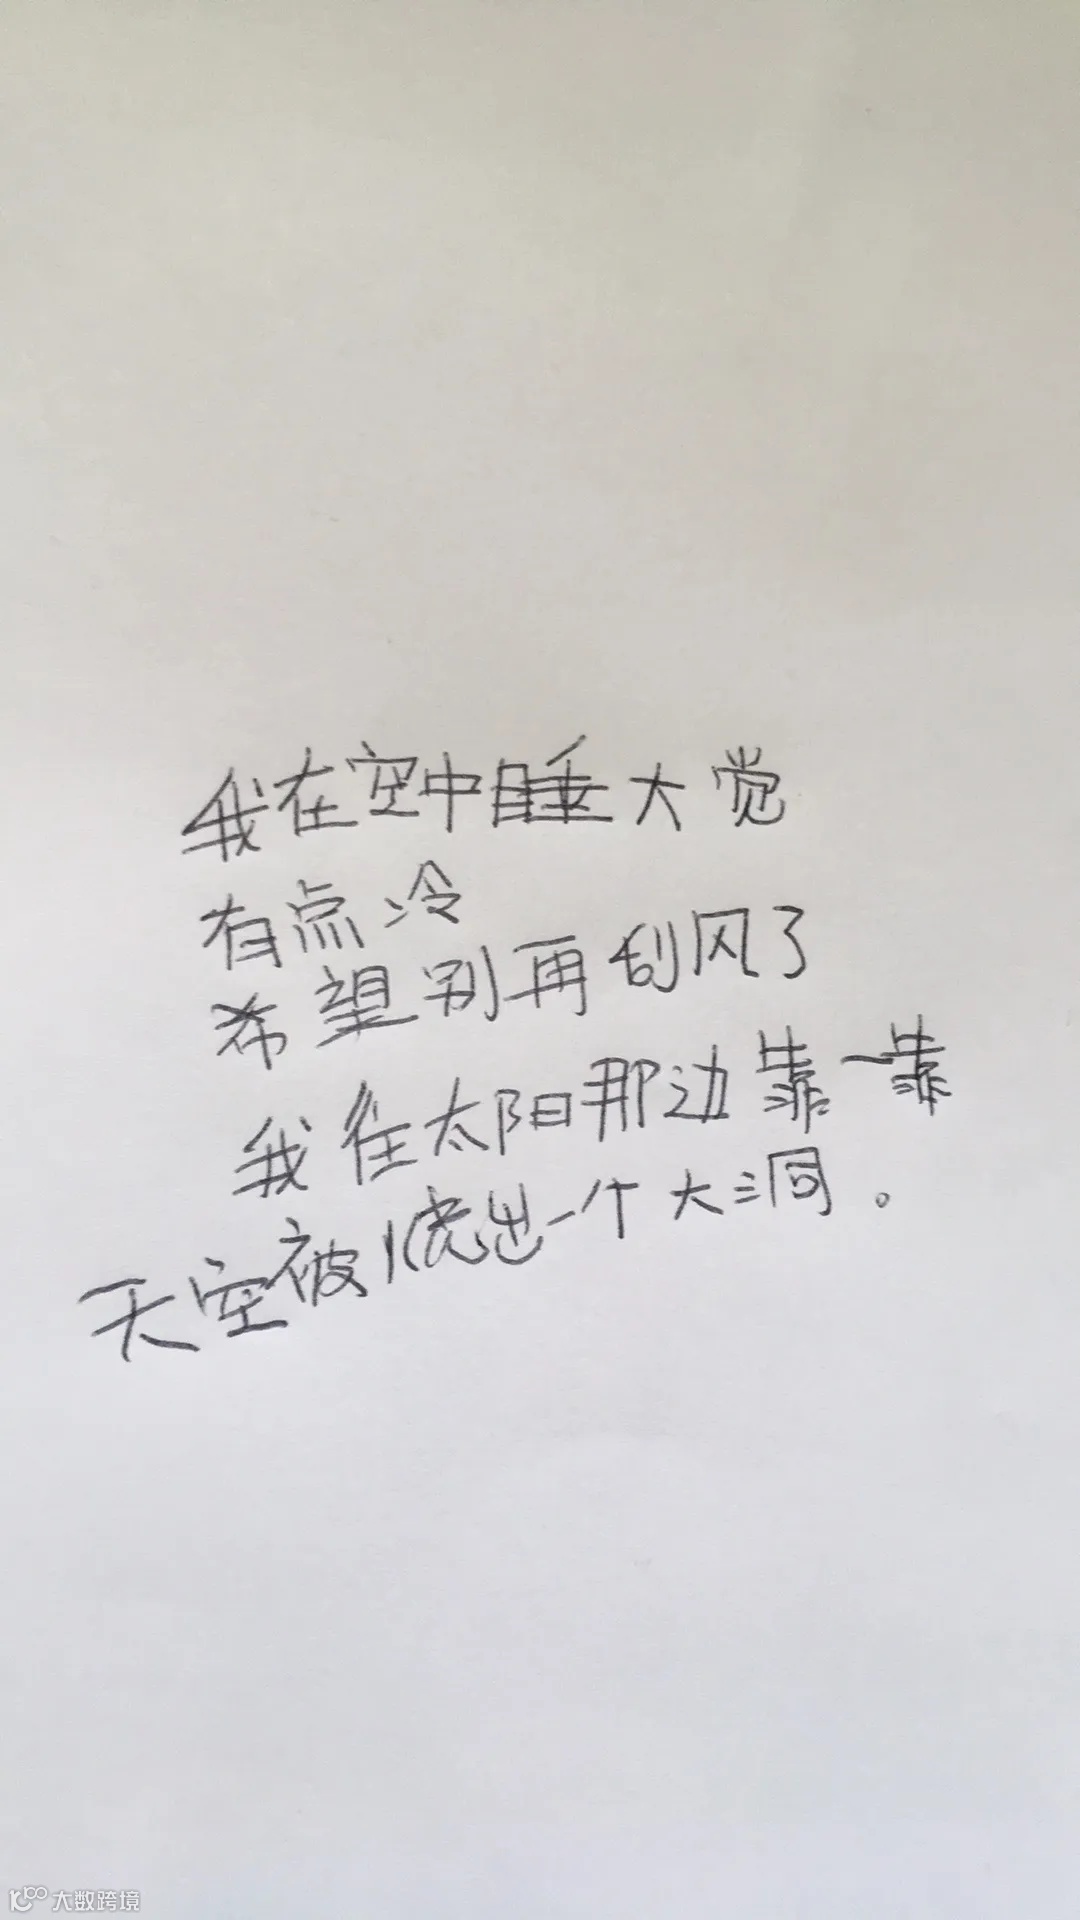 我在空中睡大觉
有点冷
希望别再刮风了
我往太阳那边靠一靠
天空被烧出一个大洞。
大数跨境